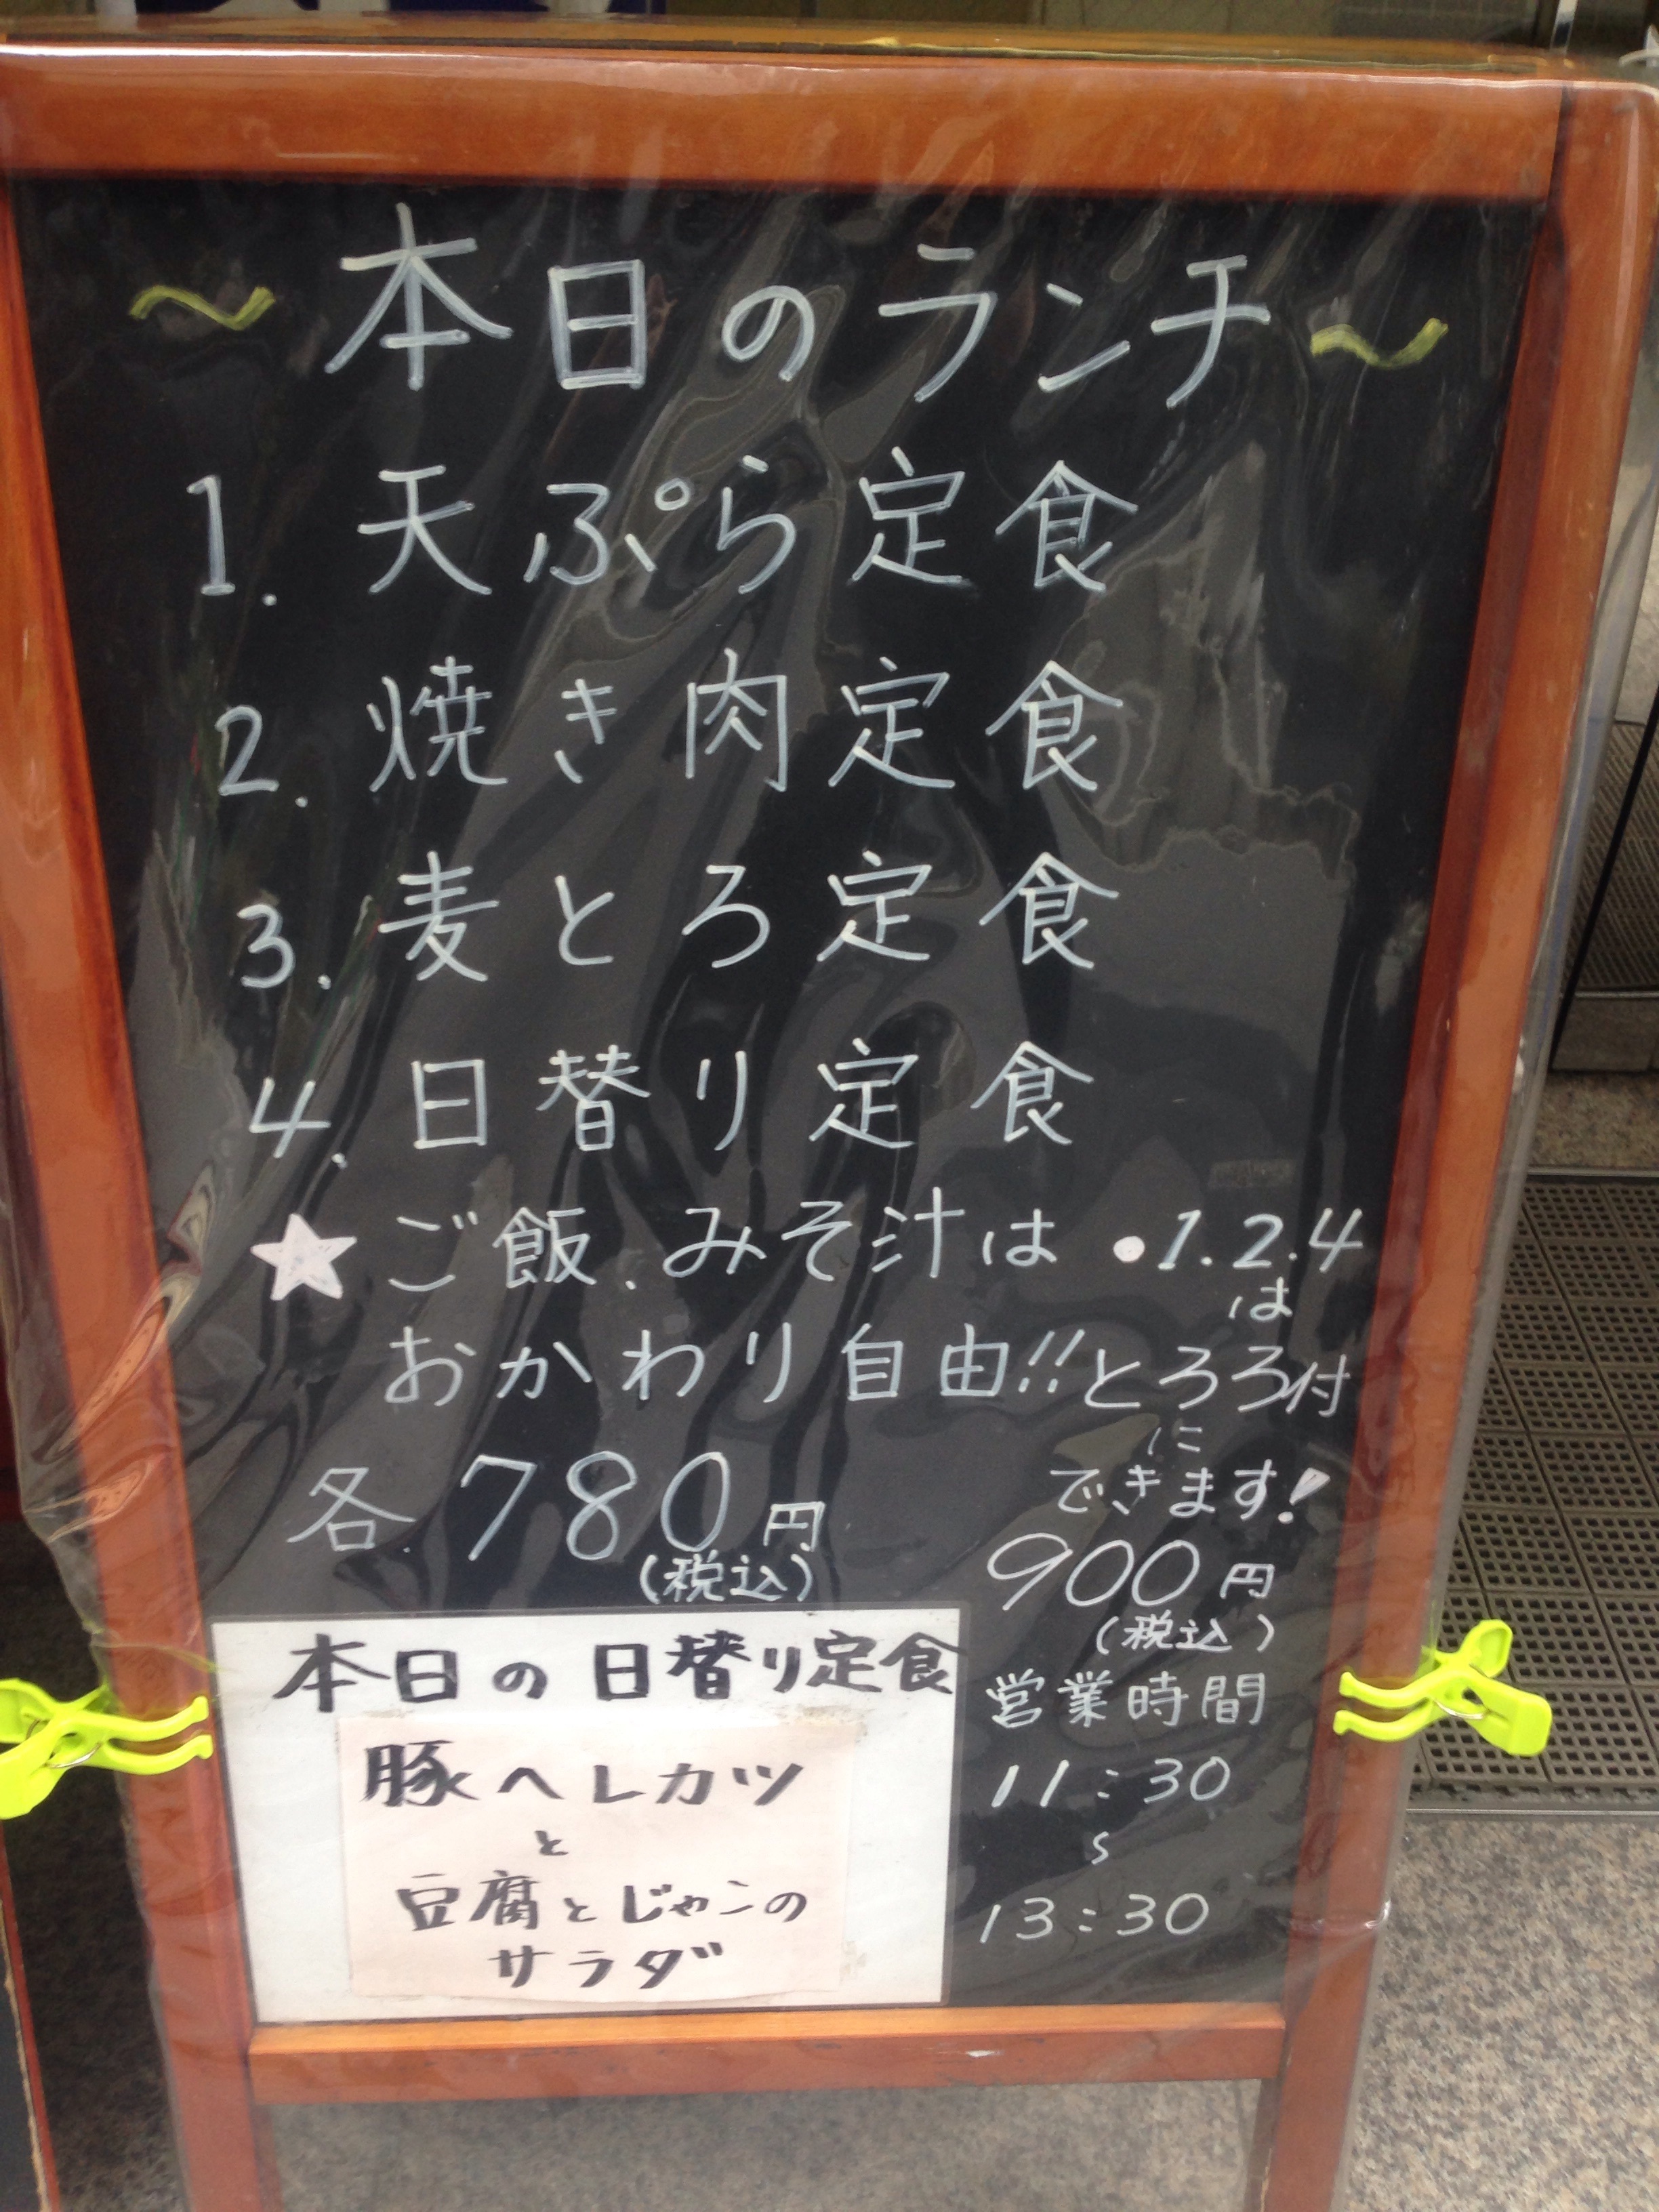 ～本日のランチ～
1. 天ぷら定食
2. 焼き肉定食
3. 麦とろ定食
4. 日替り定食
★ご飯、みそ汁は
おかわり自由!!
各 780円
(税込)
•1.2.4
は
とろろ付
に
できます!
900円
(税込)
営業時間
11:30
〜
13:30
本日の日替り定食
豚ヘレカツ
と
豆腐とじゃこの
サラダ